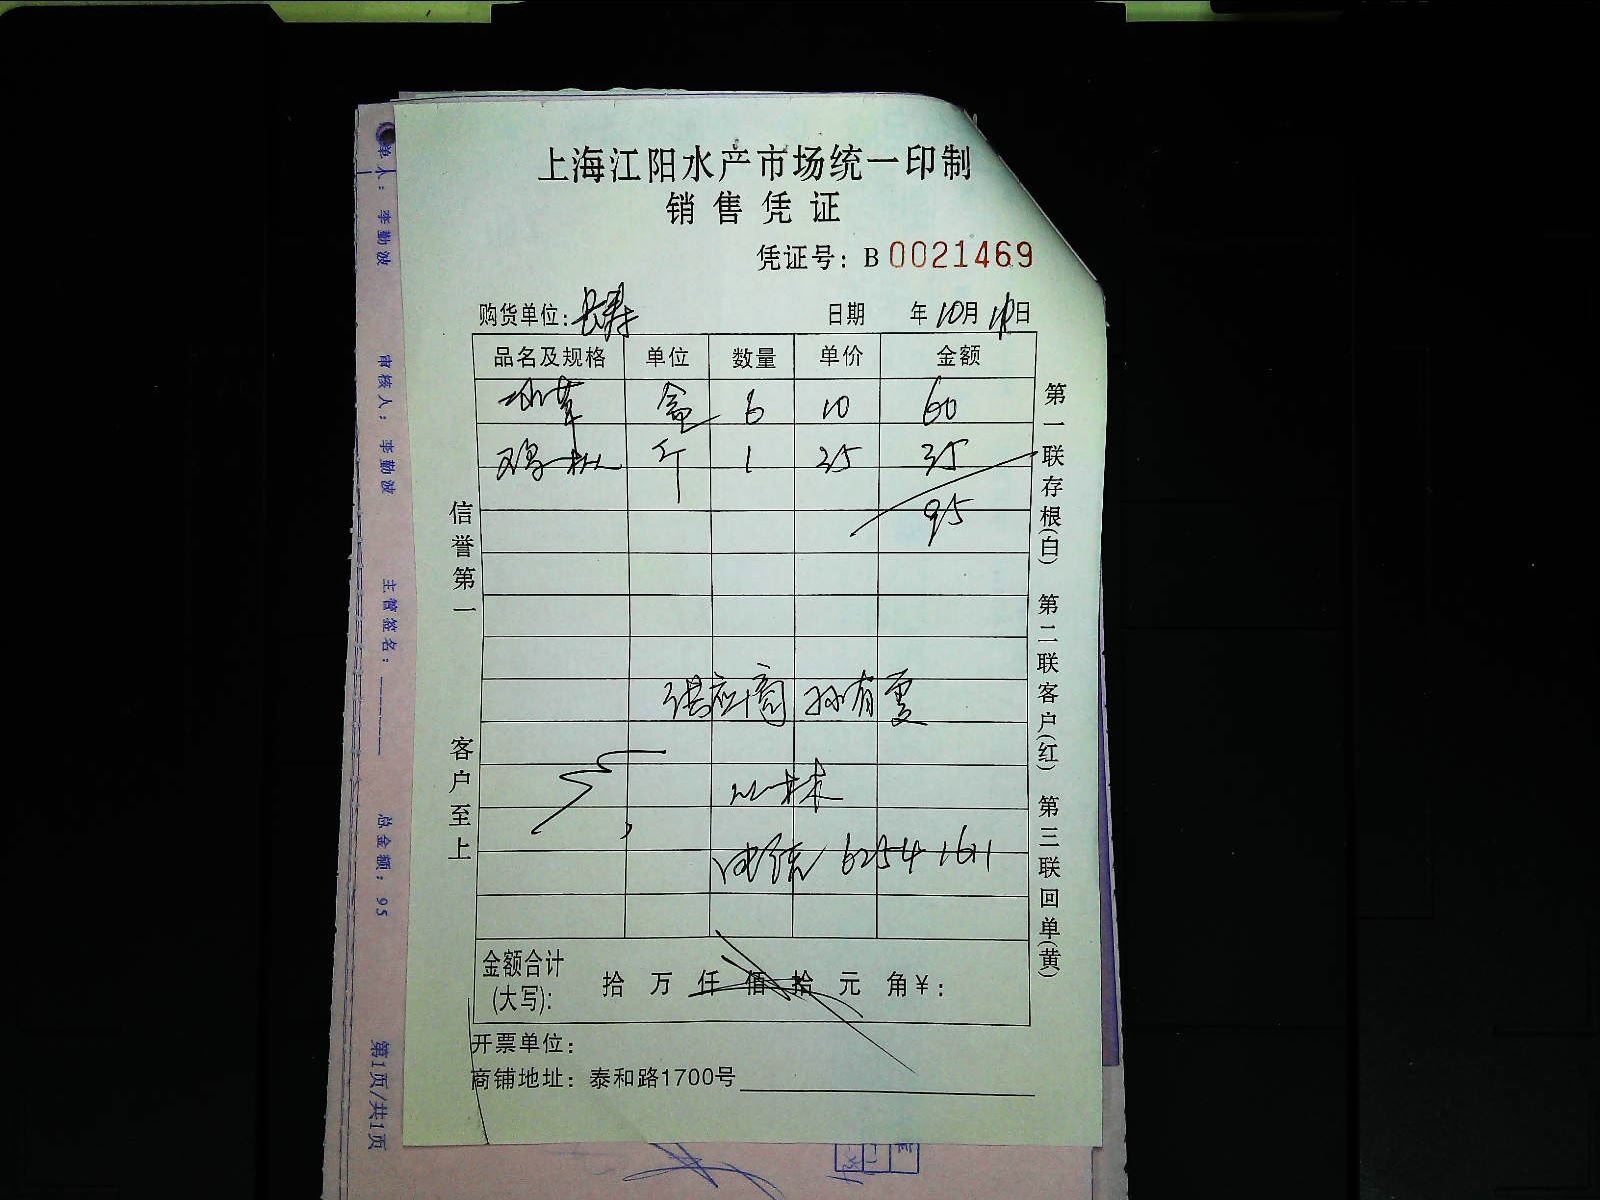 上海江阳水产市场统一印制
销售凭证
凭证号：B 0021469
购货单位：长寿 日期 年10月 日
品名及规格 单位 数量 单价 金额
盒 6 10 60
鸡枞 斤 1 35 35
95
供应商 孙有夏
电话 6254 1611
金额合计(大写)： 拾 万 仟 佰 拾 元 角¥：
开票单位：
商铺地址：泰和路1700号
信誉第一 客户至上
第一联存根(白) 第二联客户(红) 第三联回单(黄)
单人：李勤波 审核人：李勤波 主管签名：------- 总金额：95 第1页/共1页